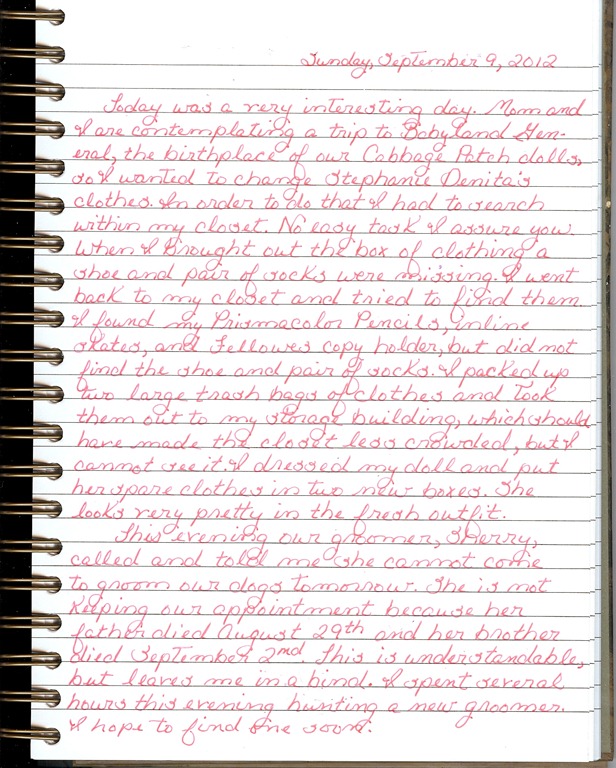 Sunday, September 9, 2012
Today was a very interesting day. Mom and
I are contemplating a trip to Babyland Gen-
eral, the birthplace of our Cabbage Patch dolls,
so I wanted to change Stephanie Denita's
clothes. In order to do that I had to search
within my closet. No easy task I assure you.
When I brought out the box of clothing a
shoe and pair of socks were missing. I went
back to my closet and tried to find them.
I found my Prismacolor Pencils, inline
skates, and Fellowes copy holder, but did not
find the shoe and pair of socks. I packed up
two large trash bags of clothes and took
them out to my storage building, which should
have made the closet less crowded, but I
cannot see it. I dressed my doll and put
her spare clothes in two new boxes. She
looks very pretty in the fresh outfit.
This evening our groomer, Sherry,
called and told me she cannot come
to groom our dogs tomorrow. She is not
keeping our appointment because her
father died August 29th and her brother
died September 2nd. This is understandable,
but leaves me in a bind. I spent several
hours this evening hunting a new groomer.
I hope to find one soon.